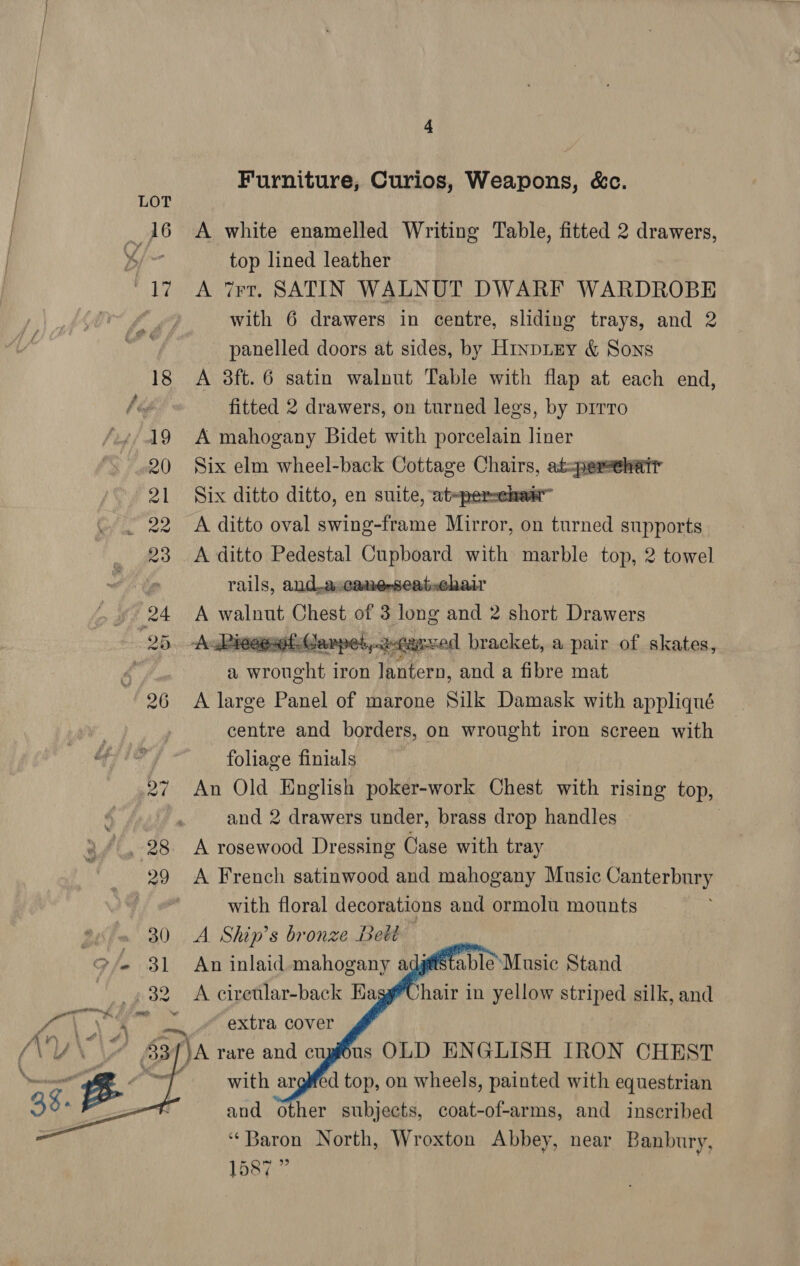 4
Furniture, Curios, Weapons, &c.
LOT
16 A white enamelled Writing Table, fitted 2 drawers,
top lined leather
17 A 7FT. SATIN WALNUT DWARF WARDROBE
with 6 drawers in centre, sliding trays, and 2
panelled doors at sides, by HINDLEY & SONS
18 A 3ft. 6 satin walnut Table with flap at each end,
fitted 2 drawers, on turned legs, by DITTO
19 A mahogany Bidet with porcelain liner
20 Six elm wheel-back Cottage Chairs, at per chair
21 Six ditto ditto, en suite, at per chair
22 A ditto oval swing-frame Mirror, on turned supports
23 A ditto Pedestal Cupboard with marble top, 2 towel
rails, and a cane-seat chair
24 A walnut Chest of 3 long and 2 short Drawers
25 A Piece of Carpet, a carved bracket, a pair of skates,
a wrought iron lantern, and a fibre mat
26 A large Panel of marone Silk Damask with appliqué
centre and borders, on wrought iron screen with
foliage finials
27 An Old English poker-work Chest with rising top,
and 2 drawers under, brass drop handles
28 A rosewood Dressing Case with tray
29 A French satinwood and mahogany Music Canterbury
with floral decorations and ormolu mounts
30 A Ship's bronze Bell
31 An inlaid mahogany adjustable Music Stand
32 A circular-back Easy Chair in yellow striped silk, and
extra cover
33 A rare and curious OLD ENGLISH IRON CHEST
with arched top, on wheels, painted with equestrian
and other subjects, coat-of-arms, and inscribed
“Baron North, Wroxton Abbey, near Banbury,
1587”